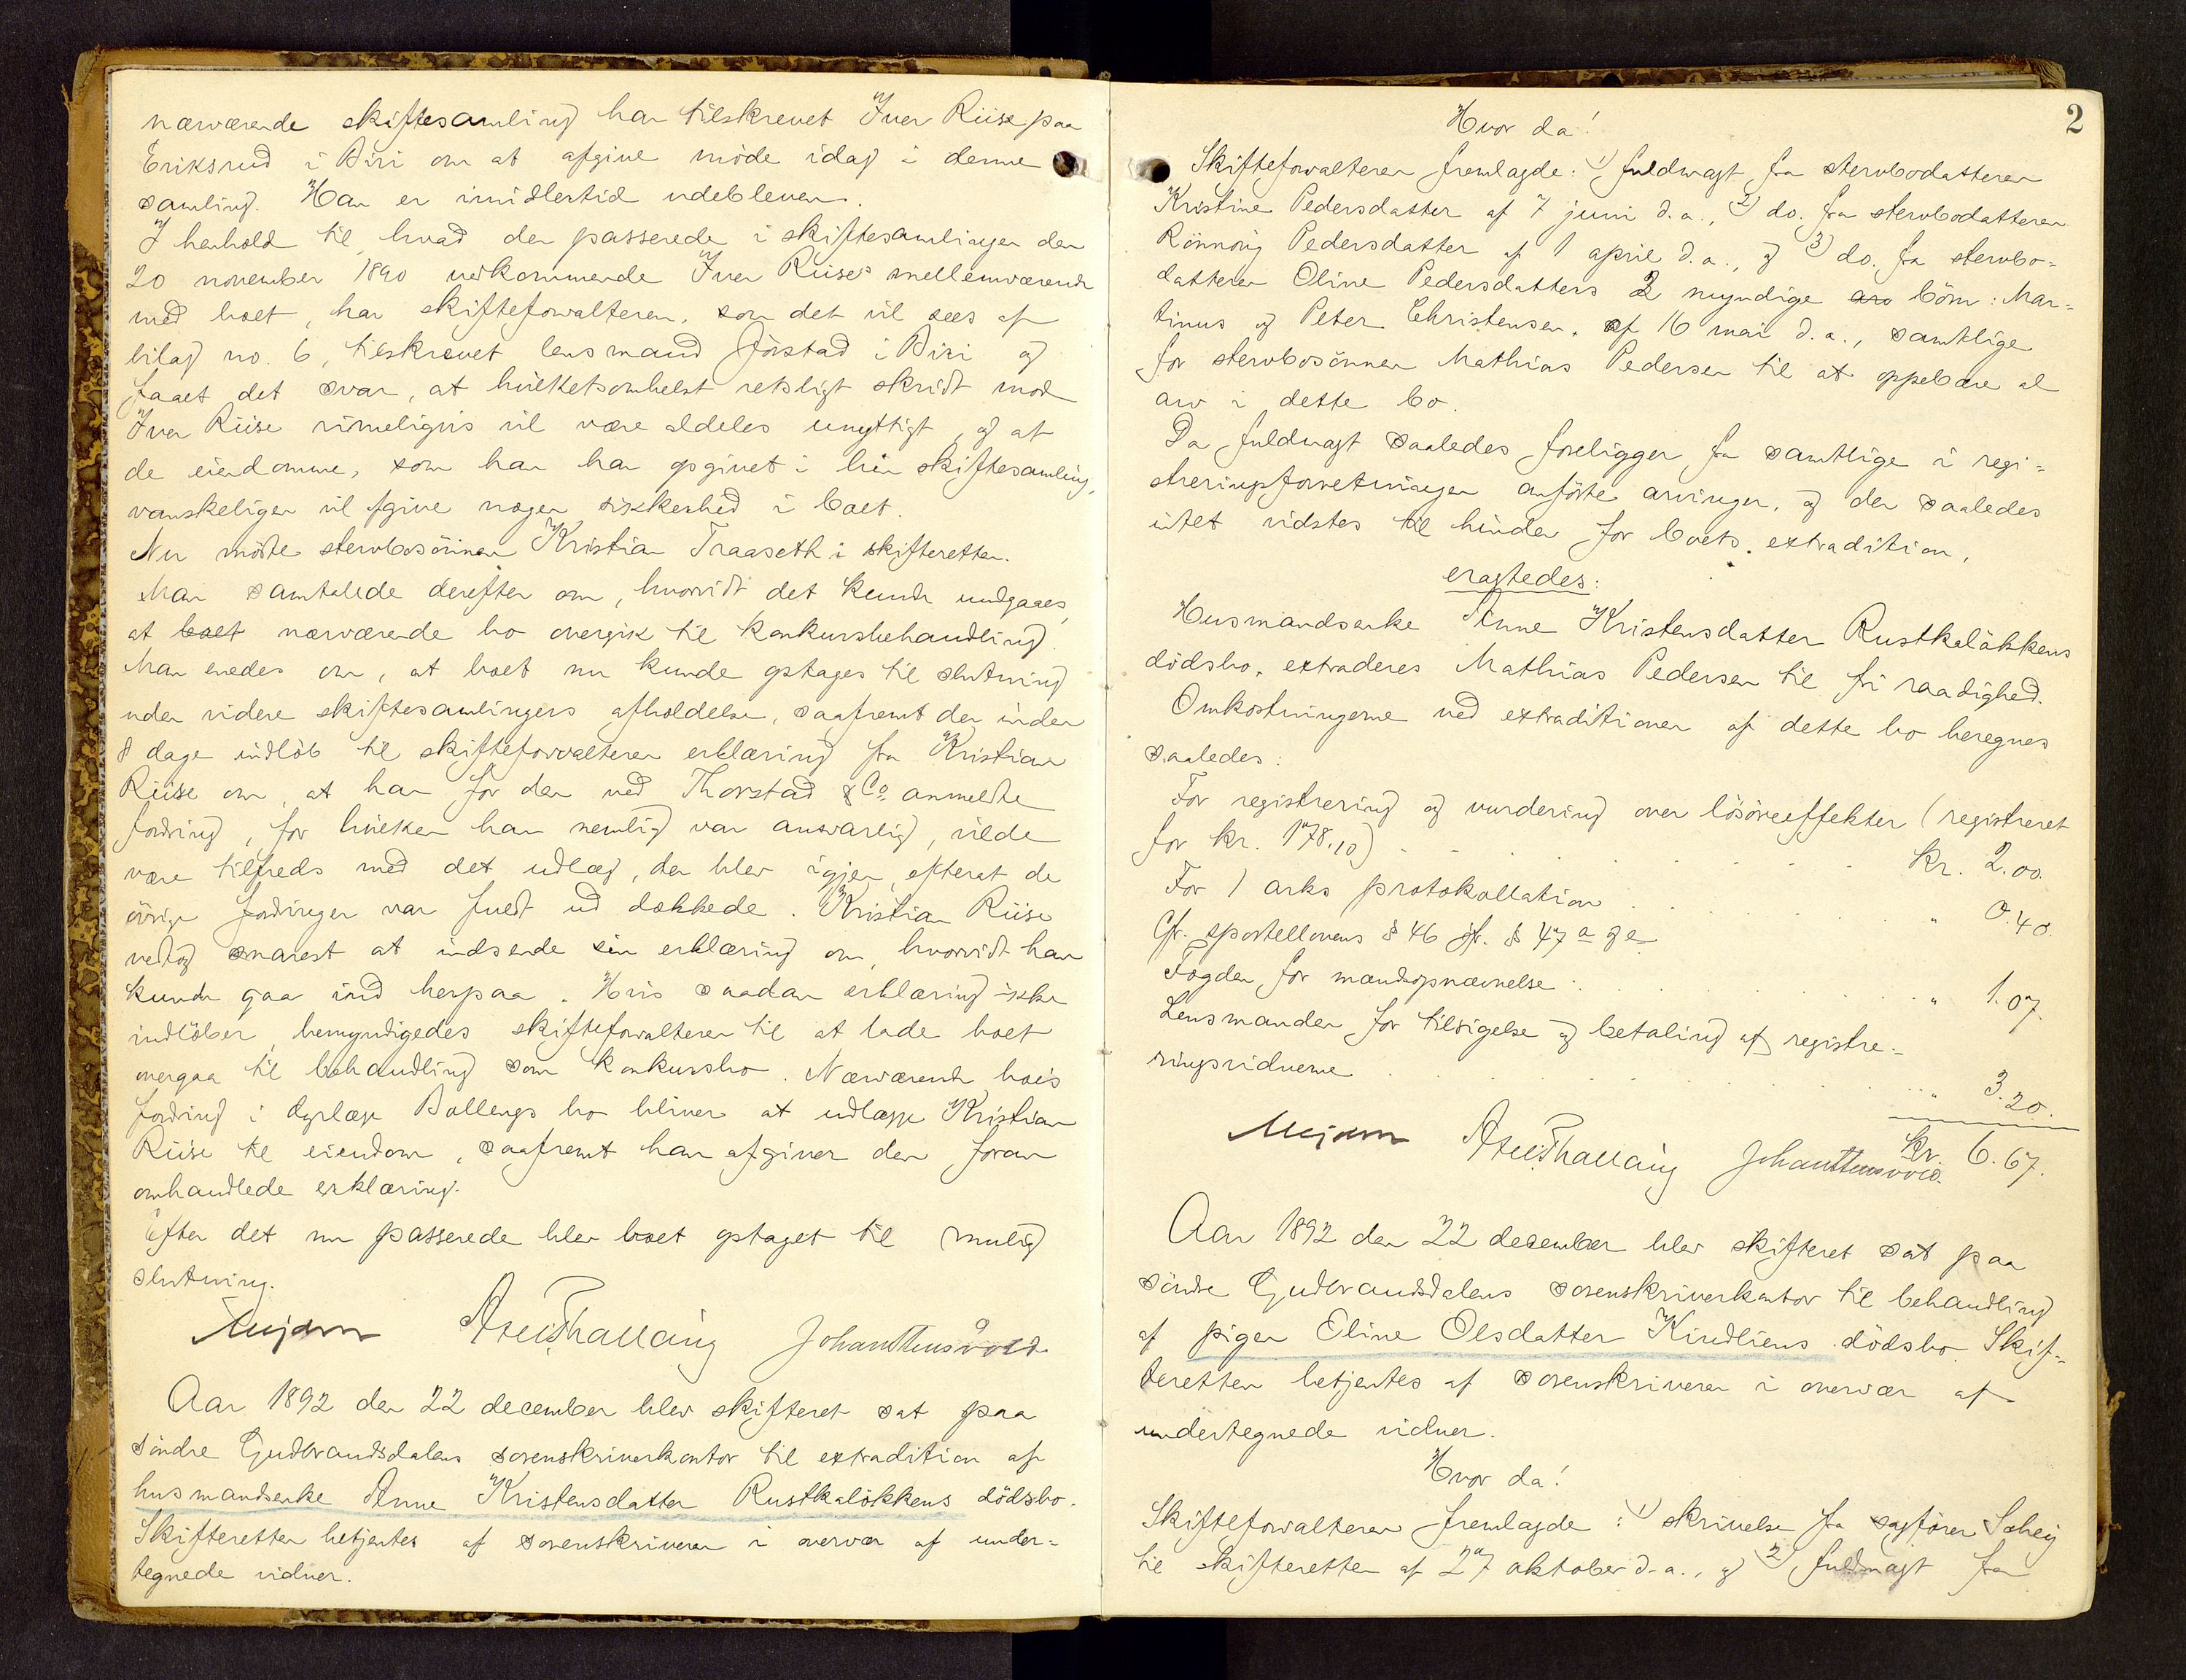 nærværende skiftesamling han tilskrevet Iver Riise paa
Eriksrud i Biri om at afgive møde idag i denne
samling. Han er imidlertid udebleven.
I henhold til, hvad der passerede i skiftesamlingen den
20 november 1890 vedkommende Iver Riises mellemværende
med boet, har skifteforvalteren, som det vil sees af
bilag no. 6, tilskrevet lensmand Jørstad i Biri og
faaet det svar, at hvilketsomhelst retsligt skridt mod
Iver Riise rimeligvis vil være aldeles unyttigt, og at
de eiendomme, som han har opgivet i hin skiftesamling,
vanskeligen vil give nogen sikkerhed i boet.
Nu mødte stervbosønnen Kristian Traaseth i skifteretten.
Man samtalede derefter om, hvorvidt det kunde undgaaes,
at boet nærværende bo overgik til konkursbehandling.
Man enedes om, at boet nu kunde optages til slutning
uden videre skiftesamlingers afholdelse, saafremt der inden
8 dage indløb til skifteforvalteren erklæring fra Kristian
Riise om, at han for den ved Thorstad & Co anmeldte
fordring, for hvilken han nemlig var ansvarlig, vilde
være tilfreds med det udlæg, der blev igjen, efterat de
øvrige fordringer var fuldt ud dækkede. Kristian Riise
vedtog snarest at indsende sin erklæring om, hvorvidt han
kunde gaa ind herpaa. Hvis saadan erklæring ikke
indløber, bemyndigedes skifteforvalteren til at lade boet
overgaa til behandling som konkursbo. Nærværende bo's
fordring i dyrlæge Ballengs bo bliver at udlægge Kristian
Riise til eiendom, saafremt han afgiver den foran
omhandlede erklæring.
Efter det nu passerede blev boet optaget til mulig
slutning.
Mejdem
Aar 1892 den 22 december blev skifteret sat paa
søndre Gudbrandsdalens sorenskriverkontor til extradition af
husmandsenke Anne Kristensdatter Rustkaløkkens dødsbo.
Skifteretten betjentes af sorenskriveren i overvær af under-
tegnede vidner.
2
Hvor da!
Skifteforvalteren fremlagde: 1) fuldmagt fra stervbodatteren
Kristine Pedersdatter af 7 juni d.a., 2) do. fra stervbodatteren
Rønnoug Pedersdatter af 1 april d.a., og 3) do. fra stervbo-
datteren Oline Pedersdatters 2 myndige arv børn: Mar-
tinus og Peter Christensen, af 16 mai d.a., samtlige
for stervbosønnen Mathias Pedersen til at oppebære al
arv i dette bo.
Da fuldmagt saaledes foreligger fra samtlige i regi-
streringsforretningen anførte arvinger, og der saaledes
intet vidstes til hinder for boets extradition,
eragtedes:
Husmandsenke Anne Kristensdatter Rustkaløkkens
dødsbo extraderes Mathias Pedersen til fri raadighed.
Omkostningerne ved extraditionen af dette bo beregnes
saaledes:
For registrering og vurdering over løsøreeffekter (registreret
for kr. 178,10) . . . . . . . . . Kr. 2.00.
For 1 arks protokollation . . . . . . . . " 0.40.
Cfr. sportellovens § 46 jfr. § 47 a og e
Fogden for mændsopnævnelse . . . . . . . . " 1.07.
Lensmanden for tilsigelse og betaling af registre-
ringsvidnerne . . . . . . . . . . " 3.20.
Kr. 6.67.
Mejdem
Aar 1892 den 22 december blev skifteret sat paa
søndre Gudbrandsdalens sorenskriverkontor til behandling
af pigen Eline Olsdatter Kindliens dødsbo. Skif-
teretten betjentes af sorenskriveren i overvær af
undertegnede vidner.
Hvor da!
Skifteforvalteren fremlagde: 1) skrivelse fra sagfører Scheig
til skifteretten af 27 oktober d.a., og 2) fuldmagt fra